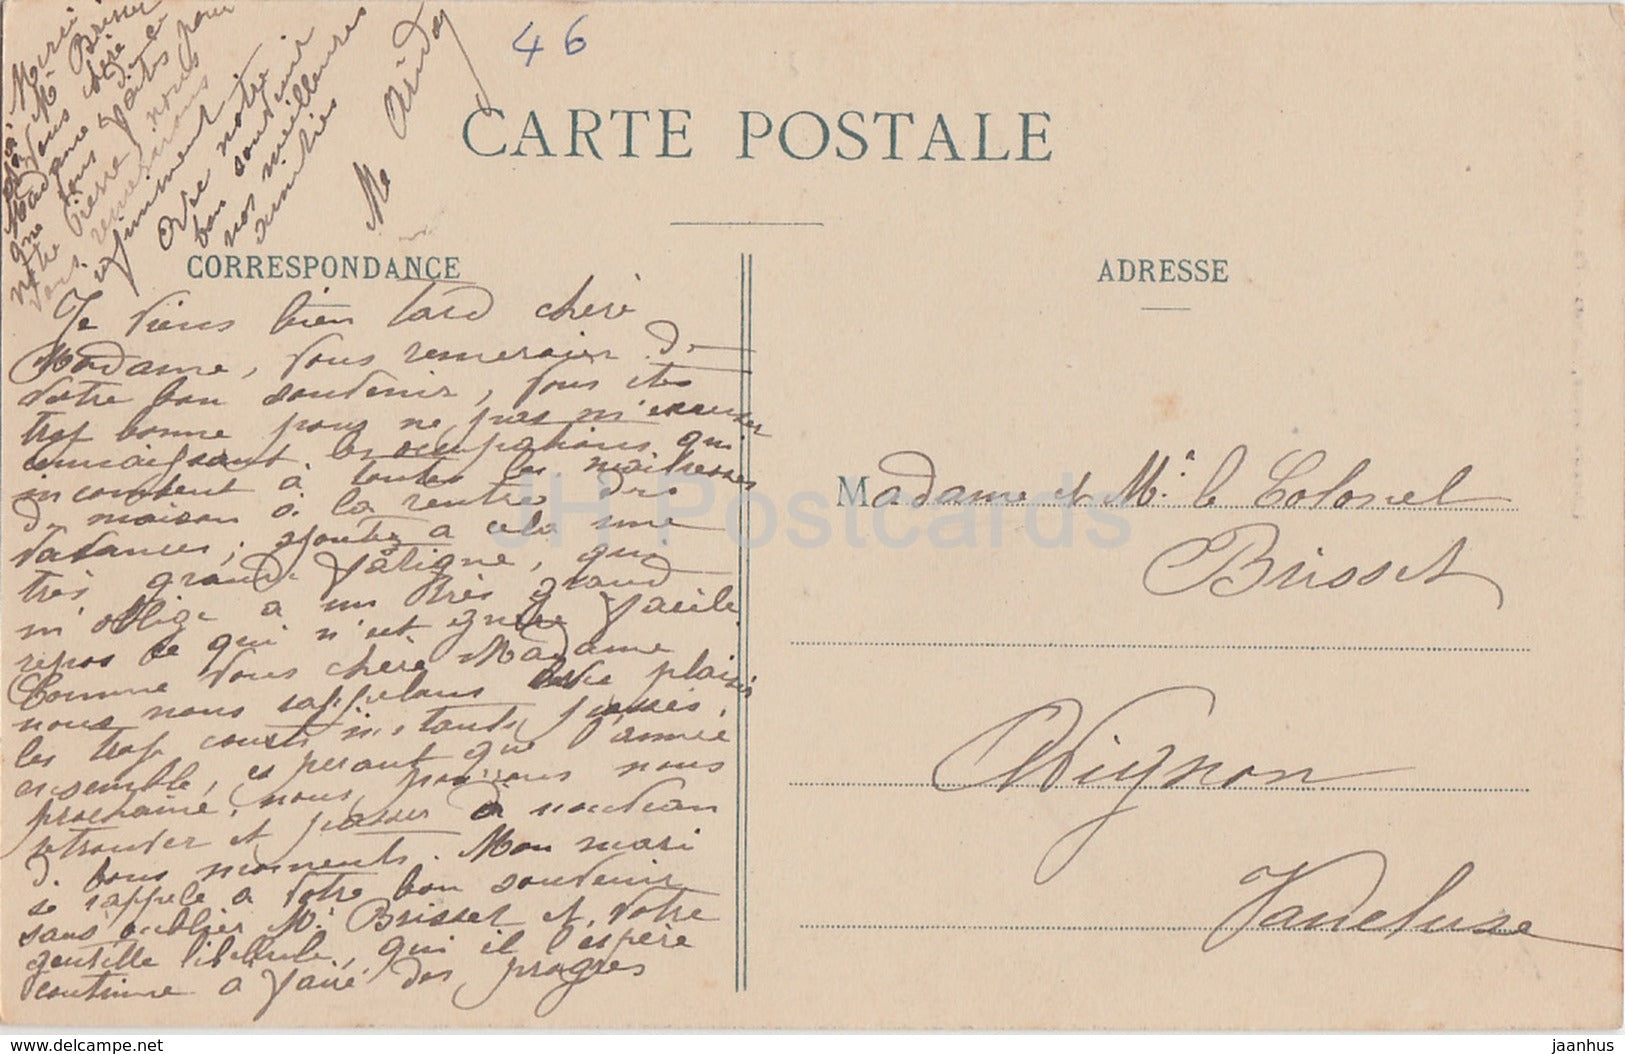 46
CARTE POSTALE
CORRESPONDANCE
ADRESSE
Je viens bien tard chère
Madame, vous remercier de
votre bon souvenir, vous êtes
trop bonne pour ne pas m'excuser
connaissant les occupations qui
incombent à toutes les maîtresses
de maison à la rentrée des
vacances; ajoutez a cela une
très grande fatigue, qui
m'oblige a un très grand
repos ce qui n'est guère facile
Comme vous chère Madame
nous nous rappelons avec plaisir
les trop courts instants passés,
ensemble, espérant que l'année
prochaine, nous, pourrons nous
retrouver et passer à nouveau
de bons moments. Mon mari
se rappele a votre bon souvenir
sans oublier Mr Brisset et votre
gentille libellule, qui il l'espère
continue a faire des progrès
Merci
à Mr Brisset
vous chère
Madame,
que vous faites pour
notre Pierre nous
vous remercions
infiniment
notre
bon souvenir
nos meilleures
amitiés
Madame et Mr. le Colonel
Brisset
Avignon
Vaucluse
JH Postcards
delcampe.net
jaanhus